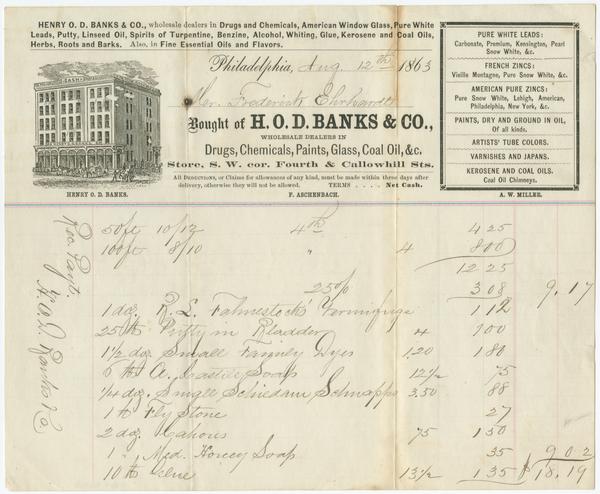 HENRY O. D. BANKS & CO., wholesale dealers in Drugs and Chemicals, American Window Glass, Pure White
Leads, Putty, Linseed Oil, Spirits of Turpentine, Benzine, Alcohol, Whiting, Glue, Kerosene and Coal Oils,
Herbs, Roots and Barks. Also, in Fine Essential Oils and Flavors.
CASH
HENRY O. D. BANKS.
Philadelphia, Aug. 12th 1863
Mr. Frederick Ehrhardt
Bought of H. O. D. BANKS & CO.,
WHOLESALE DEALERS IN
Drugs, Chemicals, Paints, Glass, Coal Oil, &c.
Store, S. W. cor. Fourth & Callowhill Sts.
All DEDUCTIONS, or Claims for allowances of any kind, must be made within three days after
delivery, otherwise they will not be allowed. TERMS . . . . Net Cash.
F. ASCHENBACH.
PURE WHITE LEADS:
Carbonate, Premium, Kensington, Pearl
Snow White, &c.
FRENCH ZINCS:
Vieille Montagne, Pure Snow White, &c.
AMERICAN PURE ZINCS:
Pure Snow White, Lehigh, American,
Philadelphia, New York, &c.
PAINTS, DRY AND GROUND IN OIL,
Of all kinds.
ARTISTS' TUBE COLORS.
VARNISHES AND JAPANS.
KEROSENE AND COAL OILS.
Coal Oil Chimneys.
A. W. MILLER.
50 ft 10/12 4th 4 25
100 ft 8/10 " 4 8 00
12 25
25% 3 08 9.17
1 doz. Fahnestocks' Vermifuge 1 12
25 lb Putty in Bladder 4 1 00
1 1/2 doz Small Family Dyes 120 1 80
6 lb Castile Soap 12 1/2 75
1/4 doz. Single Schiedam Schnapps 3.50 88
1 lb Fly Stone 27
2 doz 75 1 50
1 " Med. Honey Soap 35 9 0 2
10 lb Glue 13 1/2 1 35 $18.19
Rec. Payt.
H. O. D. Banks & Co